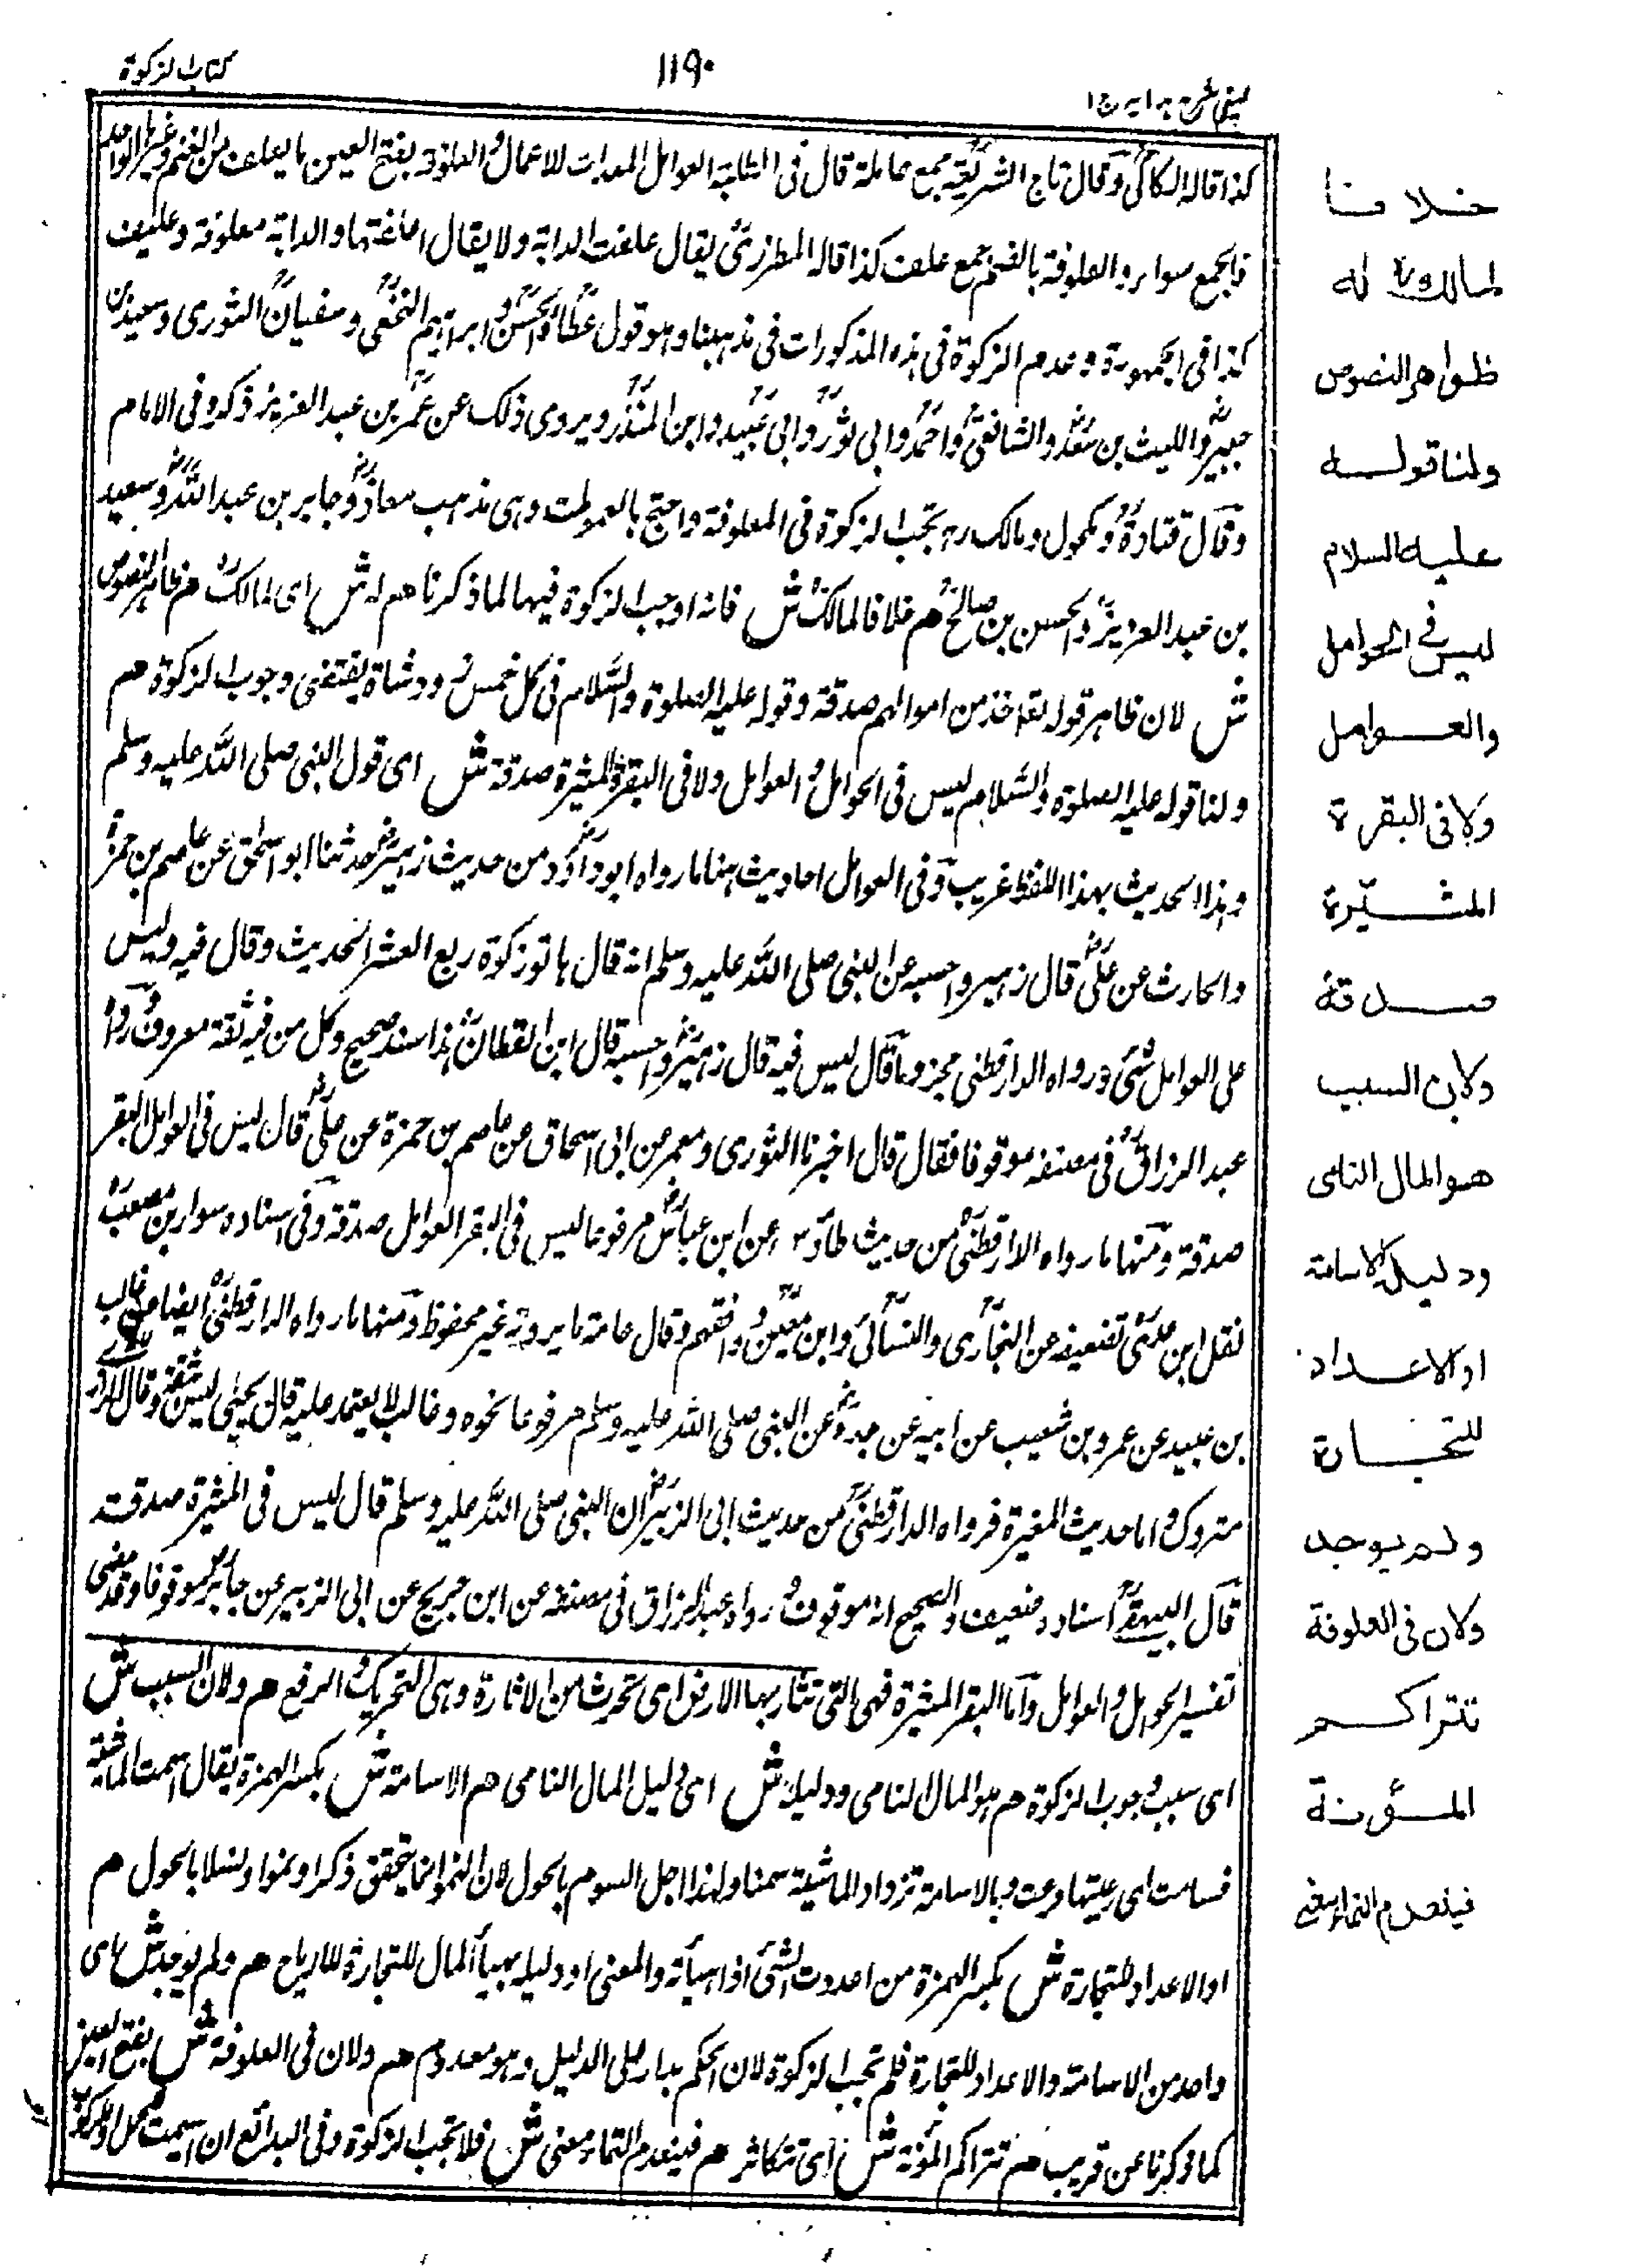 كتاب الزكوة
١١٩٠
عينى شرح هدايه ج ١
كذا قاله الكاكى وقال تاج الشريعة جمع عاملة قال فى الطلبة العوامل المعدات للاعمال والعلوفة بفتح العين ما يعلف من الغنم وغيرها الواحد
والجمع سواء والعلوفة بالضم جمع علف كذا قاله المطرزى يقال علفت الدابة ولا يقال اعلفتها والدابة معلوفة وعليف
كذا فى الجمهرة وعدم الزكوة فى هذه المذكورات فى مذهبنا وهو قول عطاء والحسن وابراهيم النخعى وسفيان الثورى وسعيد بن
جبير والليث بن سعد والشافعى واحمد وابى ثور وابى عبيد وابن المنذر ويروى ذلك عن عمر بن عبد العزيز ذكره فى الامام
وقال قتادة ومكحول ومالك رح تجب الزكوة فى المعلوفة واحتج بالعمومات وهى مذهب معاذ وجابر بن عبد الله وسعيد
بن عبد العزيز والحسن بن صالح هم خلافا لمالك ش فانه اوجب الزكوة فيها لما ذكرنا هم له ش اى لمالك هم ظاهر النصوص
ش لان ظاهر قوله تعا خذ من اموالهم صدقة وقوله عليه الصلوة والسلام فى كل خمس ذود شاة يقتضى وجوب الزكوة هم
ولنا قوله عليه الصلوة والسلام ليس فى الحوامل والعوامل ولا فى البقرة المثيرة صدقة ش اى قول النبى صلى الله عليه وسلم
وهذا الحديث بهذا اللفظ غريب وفى العوامل احاديث منها ما رواه ابو داؤد من حديث زهير حدثنا ابو اسحق عن عاصم بن حمزة
والحارث عن على قال زهير واحسبه عن النبى صلى الله عليه وسلم انه قال هاتوا زكوة ربع العشر الحديث وقال فيه وليس
على العوامل شئ ورواه الدارقطنى مجزوما قال ليس فيه قال زهير واحسبه قال ابن القطان هذا سند صحيح وكل من فيه ثقة معروف ورواه
عبد الرزاق فى مصنفه موقوفا فقال قال اخبرنا الثورى ومعمر عن ابى اسحاق عن عاصم بن حمزة عن على قال ليس فى العوامل البقر
صدقة ومنها ما رواه الدارقطنى من حديث طاؤس عن ابن عباس مرفوعا ليس فى البقر العوامل صدقة وفى اسناده سوار بن مصعب
نقل ابن عدى تضعيفه عن البخارى والنسائى وابن معين ووافقهم وقال عامة ما يرويه غير محفوظ ومنها ما رواه الدارقطنى ايضا عن غالب
بن عبيد عن عمرو بن شعيب عن ابيه عن جده عن النبى صلى الله عليه وسلم مرفوعا نحوه وغالب لا يعتمد عليه قال يحيى ليس بثقة وقال الرازى
متروك واما حديث المغيرة فرواه الدارقطنى من حديث ابى الزبير ان النبى صلى الله عليه وسلم قال ليس فى المثيرة صدقة
قال البيهقى اسناده ضعيف والصحيح انه موقوف ورواه عبد الرزاق فى مصنفه عن ابن جريج عن ابى الزبير عن جابر موقوفا وقد مضى
تفسير الحوامل والعوامل واما البقر المثيرة فهى التى تثار بها الارض اى تحرث من الاثارة وهى التحريك والرفع هم ولان السبب ش
اى سبب وجوب الزكوة هم هو المال النامى ودليله ش اى دليل المال النامى هم الاسامة ش بكسر الهمزة يقال اسمت الماشية
فسامت اى رعيتها فرعت وبالاسامة تزداد الماشية سمنا ولهذا اجل السوم بالحول لان النمو انما يتحقق ذكرا ونموا ونسلا بالحول هم
او الاعداد للتجارة ش بكسر الهمزة من اعددت الشئ اذا هيأته والمعنى او دليله يهيأ المال للتجارة للارباح هم ولم يوجد ش اى
واحد من الاسامة والاعداد للتجارة فلم تجب الزكوة لان الحكم يدار على الدليل وهو معدوم هم ولان فى العلوفة ش بفتح العين
كما ذكرنا عن قريب هم تتراكم المؤنة ش اى تتكاثر هم فينعدم النماء معنى ش فلا تجب الزكوة وفى البدائع ان اسيمت للحمل او الركوب
خلافا
لمالك رح له
ظواهر النصوص
ولنا قوله
عليه السلام
ليس فى الحوامل
والعوامل
ولا فى البقرة
المثيرة
صدقة
ولان السبب
هو المال النامى
ودليله الاسامة
او الاعداد
للتجارة
ولم يوجد
ولان فى العلوفة
تتراكم
المؤنة
فينعدم النماء معنى